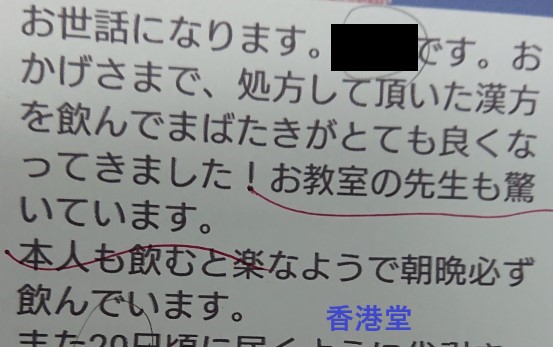 お世話になります。です。お
かげさまで、処方して頂いた漢方
を飲んでまばたきがとても良くな
ってきました！お教室の先生も驚
いています。
本人も飲むと楽なようで朝晩必ず
飲んでいます。
香港堂
また20日頃に届くように